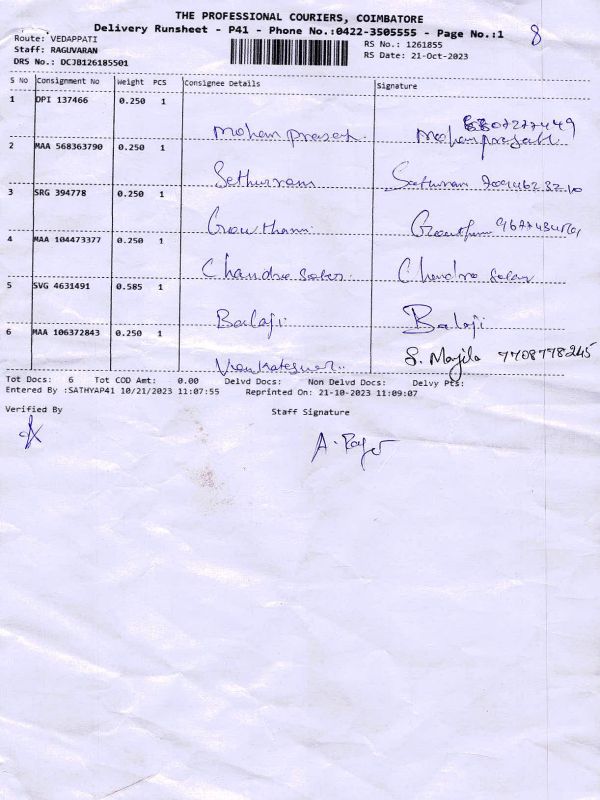 THE PROFESSIONAL COURIERS, COIMBATORE
Delivery Runsheet - P41 - Phone No.:0422-3505555 - Page No.:1
8
Route: VEDAPPATI
RS No.: 1261855
Staff: RAGUVARAN
RS Date: 21-Oct-2023
DRS No.: DCJB126185501
S No Consignment No Weight PCS Consignee Details Signature
1 DPI 137466 0.250 1
Mohan prasath
2 MAA 568363790 0.250 1
Sethurram
3 SRG 394778 0.250 1
Gowtham
4 MAA 104473377 0.250 1
Chandra Seker
5 SVG 4631491 0.585 1
Balaji Balaji
6 MAA 106372843 0.250 1
S. Majila 7708778245
Tot Docs: 6 Tot COD Amt: 0.00 Delvd Docs: Non Delvd Docs: Delvy Pts:
Entered By :SATHYAP41 10/21/2023 11:07:55 Reprinted On: 21-10-2023 11:09:07
Verified By Staff Signature